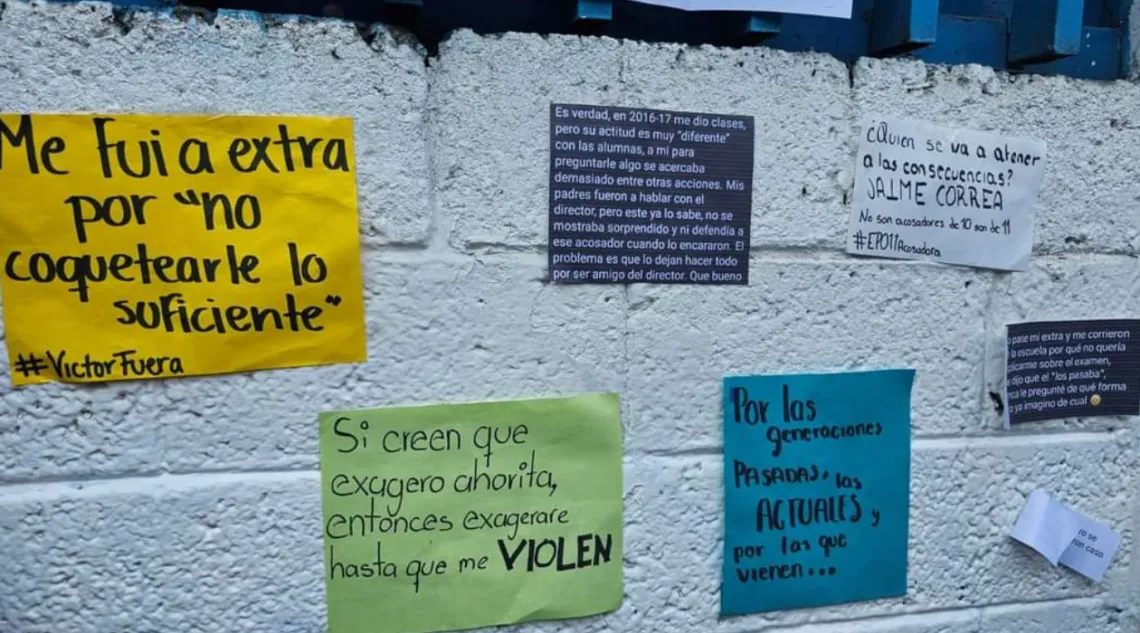 Me fui a extra
por "no
coquetearle lo
suficiente"
#VictorFuera
Es verdad, en 2016-17 me dio clases,
pero su actitud es muy "diferente"
con las alumnas, a mi para
preguntarle algo se acercaba
demasiado entre otras acciones. Mis
padres fueron a hablar con el
director, pero este ya lo sabe, no se
mostraba sorprendido y ni defendía a
ese acosador cuando lo encararon. El
problema es que lo dejan hacer todo
por ser amigo del director. Que bueno
¿Quien se va a atener
a las consecuencias?
JAIME CORREA
No son acosadores de 10 son de 11
#EPO11Acosadora
pase mi extra y me corrieron
la escuela por qué no quería
sobre el examen,
dijo que el "los pasaba",
le pregunté de qué forma
ya imagino de cual
Si creen que
exagero ahorita,
entonces exagerare
hasta que me VIOLEN
Por las
generaciones
PASADAS, las
ACTUALES y
por las que
vienen...
ro se
ron caso